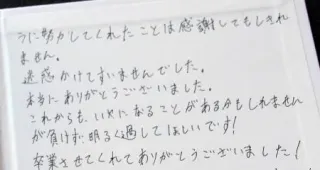 うに努力してくれたことは感謝してもしきれ
ません。
迷惑かけてすいませんでした。
本当にありがとうございました。
これからも、いやになることがある分もしれません
が負けず、明るく過してほしいです!
卒業させてくれてありがとうございました!